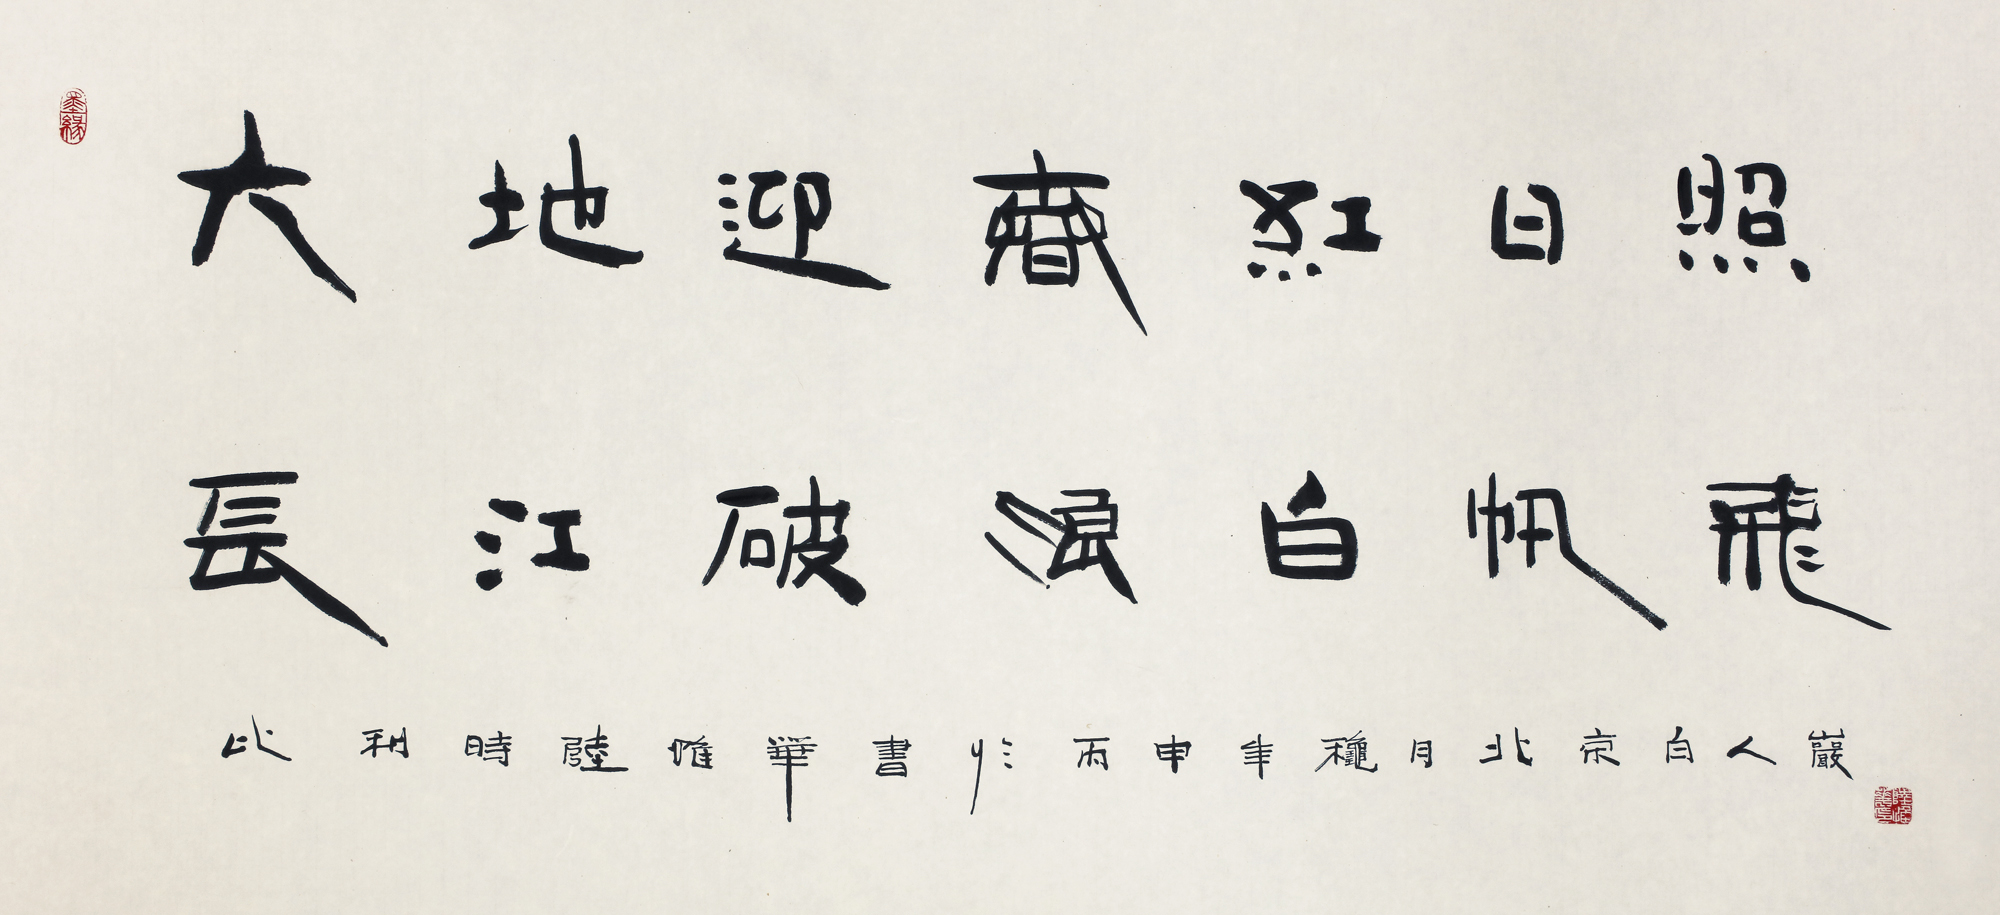 大地迎春紅日照
長江破浪白帆飛
比利時陸惟華書於丙申年穐月北京白人巖
墨緣